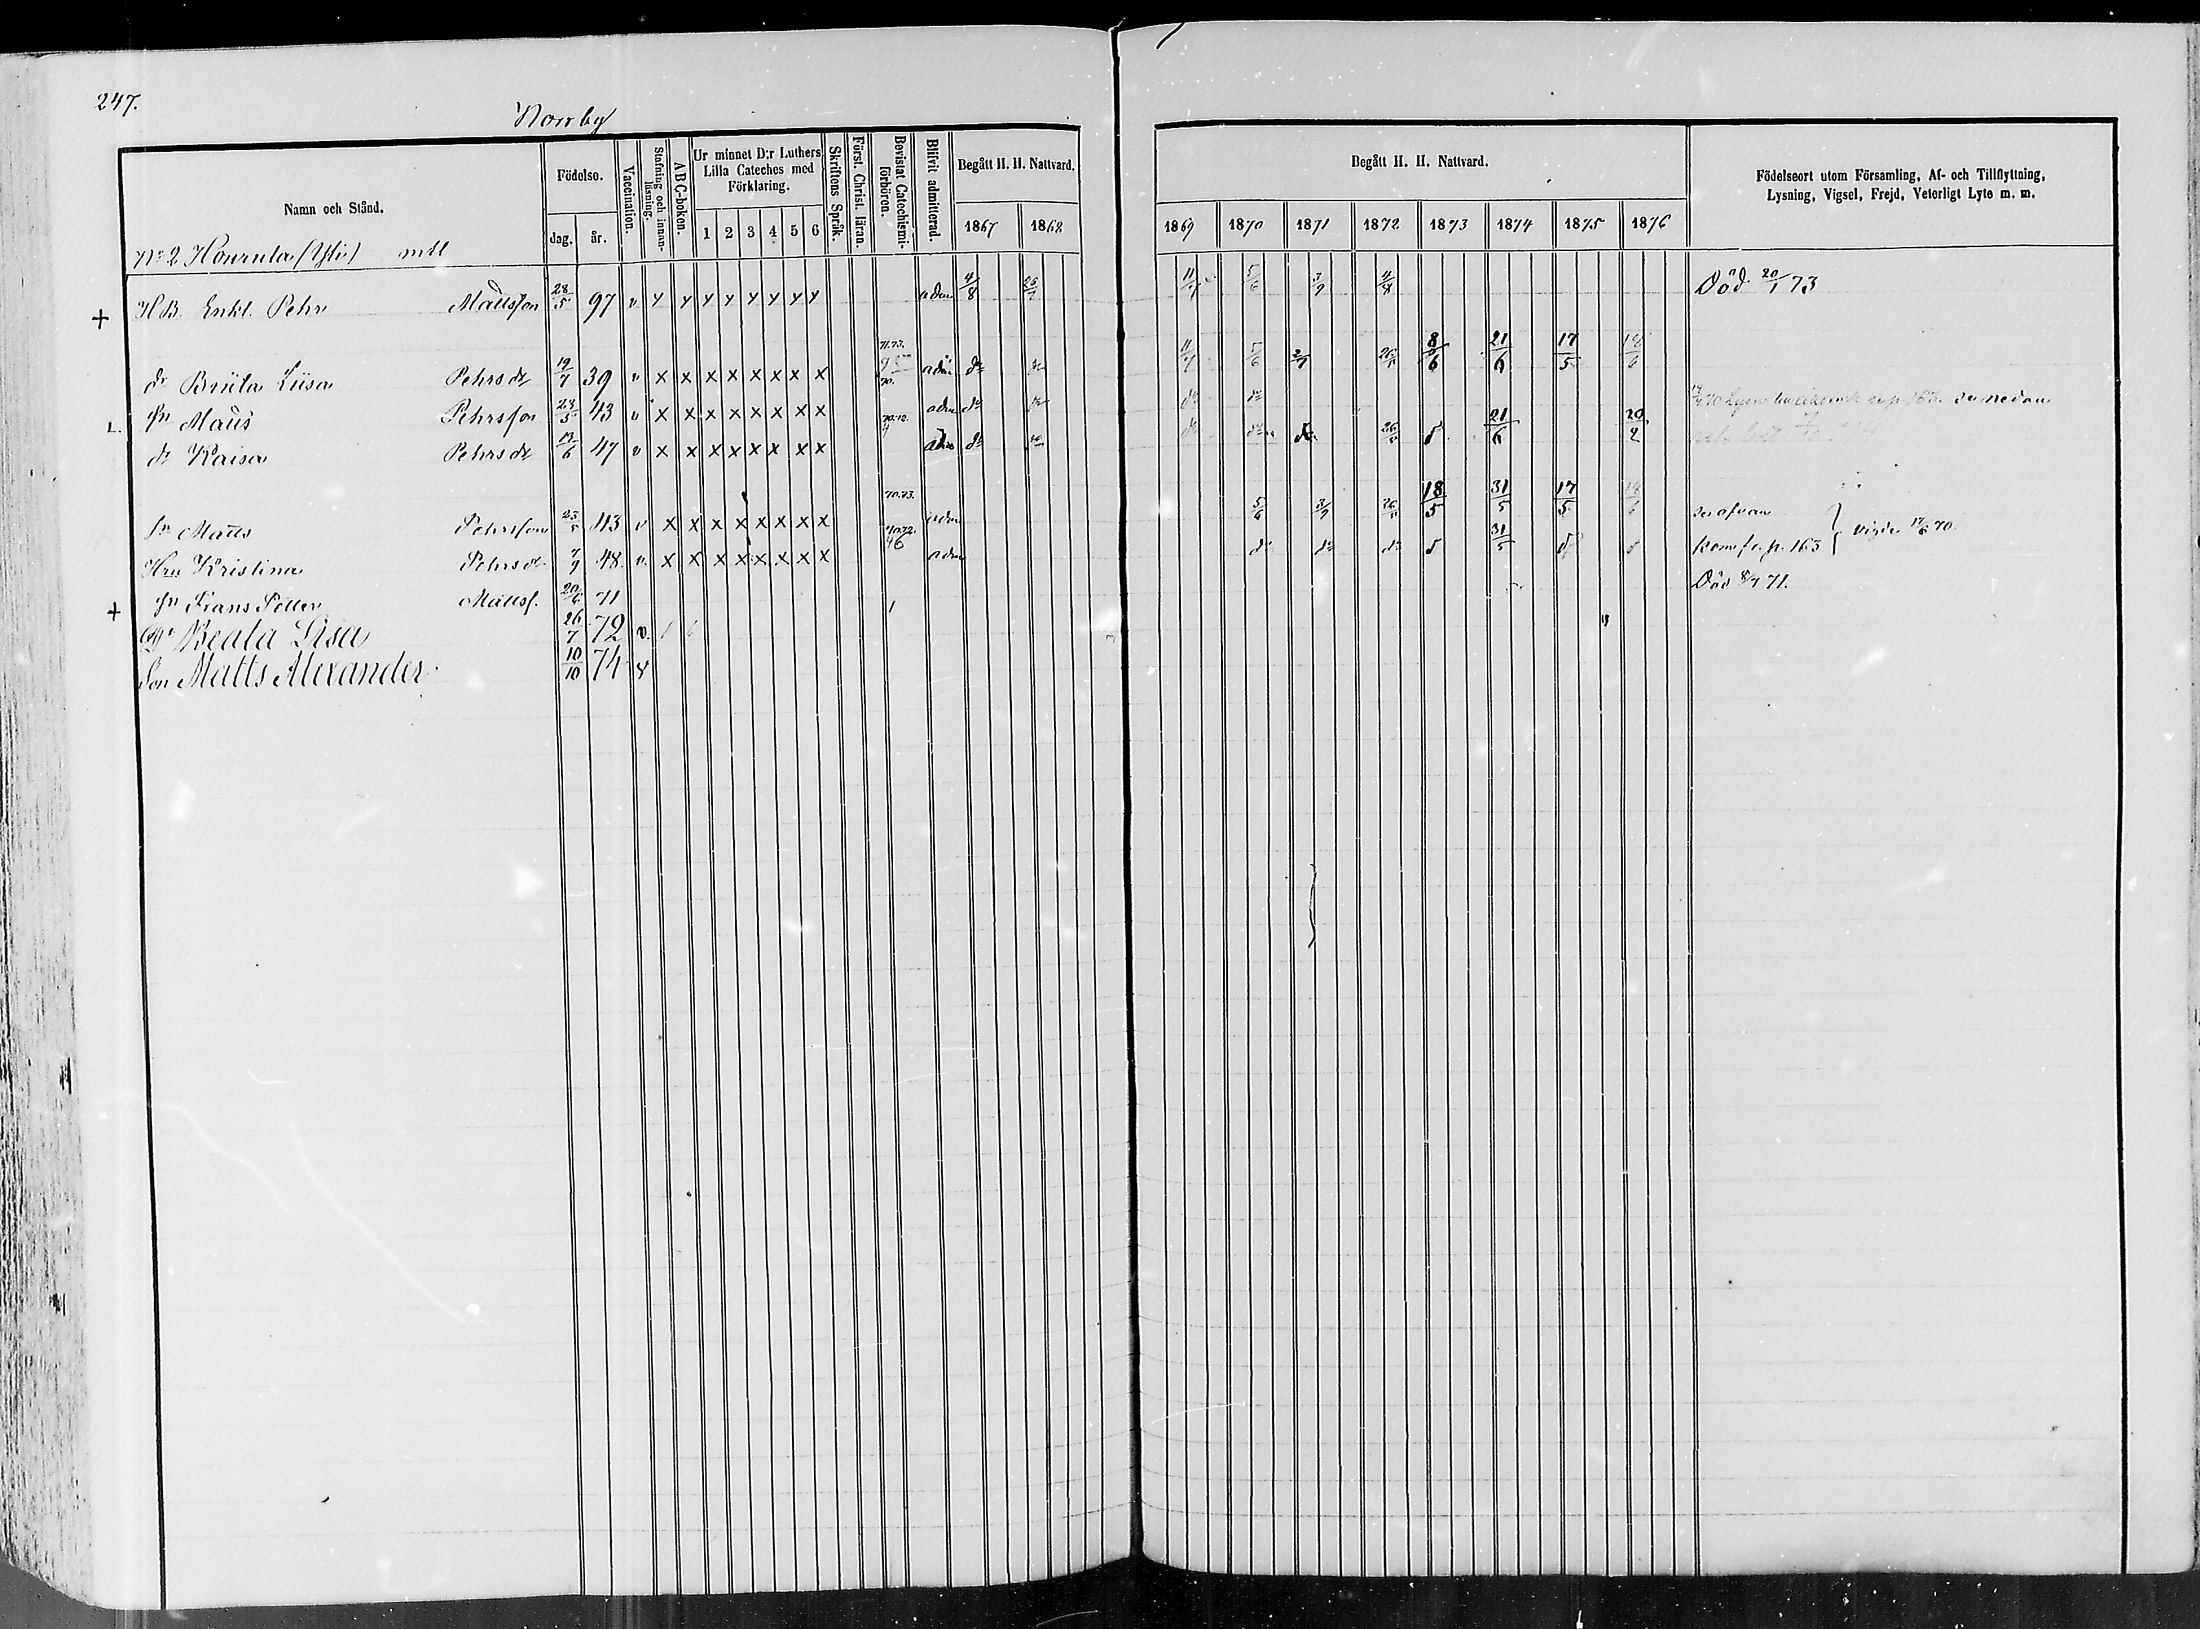 247.
Norrby
Namn och Stånd.
Födelse.
dag. år.
Vaccination.
Stafning och innanläsning.
ABC-boken.
Ur minnet D:r Luthers Lilla Cateches med Förklaring.
1 2 3 4 5 6
Skriftens Språk.
Först. Christ. läran.
Bevistat Catechismiförhören.
Blifvit admitterad.
Begått H. H. Nattvard.
1867 1868
Begått H. H. Nattvard.
1869 1870 1871 1872 1873 1874 1875 1876
Födelseort utom Församling, Af- och Tillflyttning,
Lysning, Vigsel, Frejd, Veterligt Lyte m. m.
No 2 mtl
+ Enkl. Pehr Mattsson 28/5 97 v y y y y y y y y adm 4/8 11/7 5/6 3/7 11/8 Död 20/1 73
dr Brita Liisa Pehrsdr 19/7 39 v x x x x x x x x 71.73. 70. adm do 11/7 5/6 2/7 8/6 21/6 17/5 18/6
Sn Matts Pehrsson 23/5 43 v x x x x x x x x adm do do do p. 163 nedan
dr Kaisa Pehrsdr 12/6 47 v x x x x x x x x adm do do do 26/5 21/6 20/2
Sn Matts Pehrsson 23/5 43 v x x x x x x x x 70.73. adm 5/6 3/7 26/5 18/5 31/5 17/5 18/6 se ofvan
Hru Kristina Pehrsdr 7/7 48 v. x x x x x x x x 70.72. 46 adm do do do 31/5 kom fr. p. 163 } vigde 17/6 70.
+ Sn Frans Petter Mattsf. 20/6 71 1 Död 8/7 71.
Dr Beata Lisa 26/7 72 v.
Son Matts Alexander 10/10 74 v